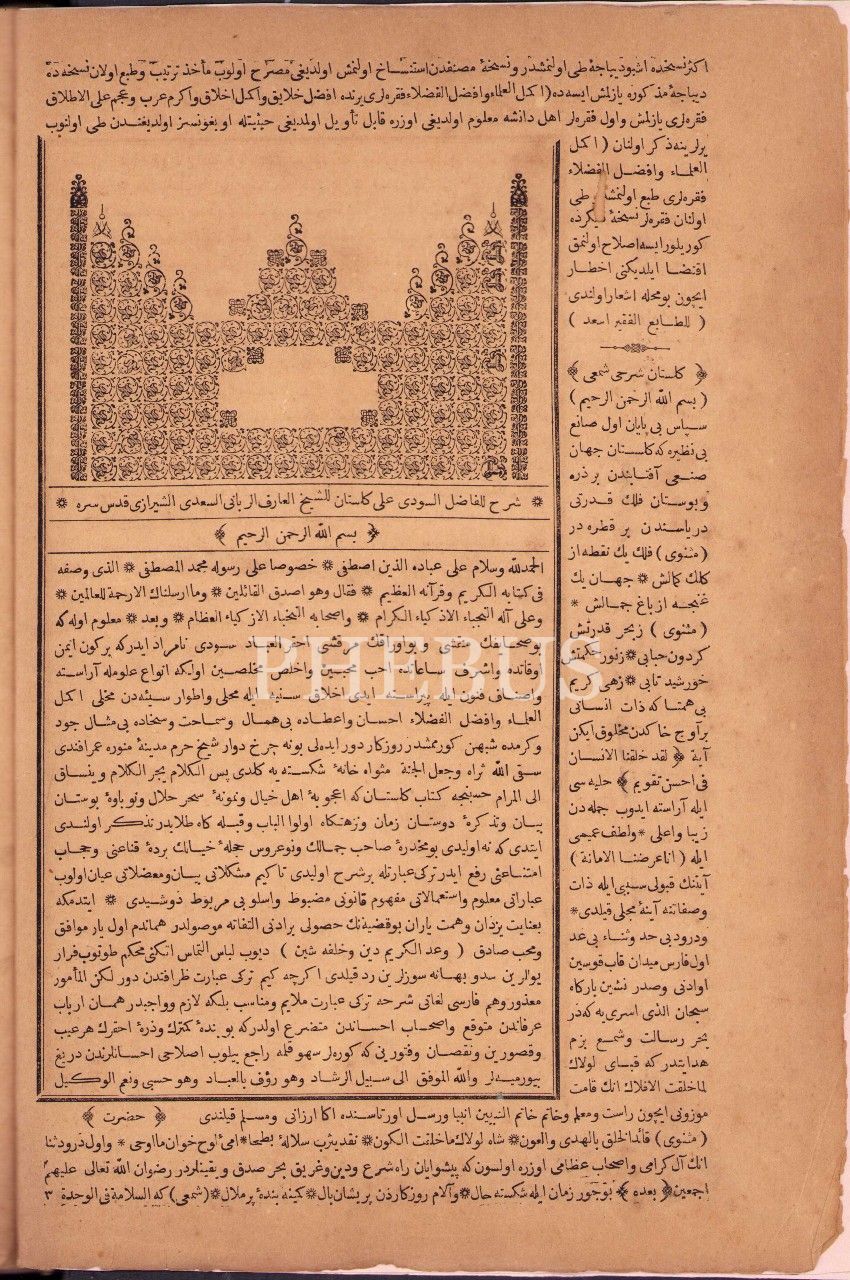 اكثر نسخه‌ده اشبو ديباجه طی اولنمشدر و نسخهٔ مصنفدن استنساخ اولنمش اولديغی مصرح اولوب مأخذ ترتيب و طبع اولان نسخه‌ده
ديباجهٔ مذكوره يازلمش ايسه‌ده (اكمل العلماء وافضل الفضلاء فقره‌لری يرنده افضل خلايق واكمل اخلاق واكرم عرب وعجم علی الاطلاق
فقره‌لری يازلمش واول فقره‌لر اهل دانشه معلوم اولديغی اوزره قابل تأويل اولمديغی حيثيتله اويغونسز اولديغندن طی اولنوب
يرلرينه ذكر اولنان (اكمل
العلماء وافضل الفضلاء
فقره‌لری طبع اولنمشدر طی
اولنان فقره‌لر نسخهٔ ديكرده
كوريلورايسه اصلاح اولنمق
اقتضا ايلديكنی اخطار
ايچون بومحله اشعار اولندی
( للطابع الفقير اسعد )
﴿ كلستان شرحی شمعی ﴾
( بسم الله الرحمن الرحيم )
سپاس بی پايان اول صانع
بی نظيره كه كلستان جهان
صنعی آفتابندن بر ذره
و بوستان فلك قدرتی
درياسندن بر قطره در
(مثنوی) فلك يك نقطه از
كلك كمالش * جهان يك
غنچه از باغ جمالش *
(مثنوی) زبحر قدرتش
كردون حبابی * زنور حكمتش
خورشيد تابی * زهی كريم
بی همتا كه ذات انسانی
براوج خاكدن مخلوق ايكن
آية ﴿ لقد خلقنا الانسان
فی احسن تقويم ﴾ حليه سی
ايله آراسته ايدوب جمله‌دن
زيبا واعلی * ولطف عميمی
ايله (اناعرضنا الامانة)
آيتنك قبولی سببی ايله ذات
وصفاتنه آينهٔ مجلی قيلدی *
ودرود بی حد وثناء بی عد
اول فارس ميدان قاب قوسين
اوادنی وصدر نشين بارکاه
سبحان الذی اسری به كه‌در
بحر رسالت وشمع بزم
هدايتدر كه قبای لولاك
لما خلقت الافلاك انك قامت
* شرح للفاضل السودی علی كلستان للشيخ العارف الربانی السعدی الشيرازی قدس سره *
﴿ بسم الله الرحمن الرحيم ﴾
الحمدلله وسلام علی عباده الذين اصطفی * خصوصا علی رسوله محمد المصطفی * الذی وصفه
فی كتابه الكريم وقرآنه العظيم * فقال وهو اصدق القائلين * وماارسلناك الارحمة للعالمين *
وعلی آله النجباء الاذكياء الكرام * واصحابه النخباء الازكياء العظام * وبعد * معلوم اوله كه
بوصحايفك منقشی و بواوراقك مرقشی احقر العباد سودی نامراد ايدر كه بركون ايمن
اوقاتده واشرف ساعاتده احب محبين واخلص مخلصين اولكه انواع علومله آراسته
واصناف فنون ايله پيراسته ايدی اخلاق سنيه ايله محلی واطوار سيئه‌دن مخلی اكمل
العلماء وافضل الفضلاء احسان واعطاده بی همال وسماحت وسخاده بی مثال جود
وكرمده شبهن كورممشدر روزكار دور ايده‌لی بونه چرخ دوار شيخ حرم مدينهٔ منوره عمر افندی
سقی الله ثراه وجعل الجنة مثواه خانهٔ شكسته‌يه كلدی پس الكلام يجر الكلام وينساق
الی المرام حسبنجه كتاب كلستان كه اعجوبهٔ اهل خيال ونمونهٔ سحر حلال ونوباوهٔ بوستان
بيان وتذكرهٔ دوستان زمان ونزهتكاه اولوا الباب وقبله كاه طلابدر تذكر اولندی
ايتدی كه نه اوليدی بومخدرهٔ صاحب جمالك ونوعروس حجلهٔ خيالك پردهٔ قناعنی وحجاب
امتناعنی رفع ايدر تركی عبارتله برشرح اوليدی تاكيم مشكلاتی بيان ومعضلاتی عيان اولوب
عباراتی معلوم واستعمالاتی مفهوم قانونی مضبوط واسلوبی مربوط ذوشيدی * ايتدمكه
بعنايت يزدان وهمت ياران بوقضيه‌نك حصولی برادنی التفاته موصولدر هماندم اول يار موافق
ومحب صادق ( وعد الكريم دين وخلفه شين ) ديوب لباس التماس اتكنی محكم طوتوب فرار
يوالرين سدو بهانه سوزلرين رد قيلدی اكرچه كيم تركی عبارت ظرافتدن دور لكن المأمور
معذور وهم فارسی لغاتی شرحه تركی عبارت ملايم ومناسب بلكه لازم وواجبدر همان ارباب
عرفاندن متوقع واصحاب احساندن متضرع اولدر كه بو بندهٔ كمترك وذرهٔ احقرك هرعيب
وقصورين ونقصان وفتورين كه كوره‌لر سهو قلمه راجع بيلوب اصلاحی احسانلرندن دريغ
بيورميه‌لر والله الموفق الی سبيل الرشاد وهو رؤف بالعباد وهو حسبی ونعم الوكيل
موزونی ايچون راست ومعلم وخاتم خاتم النبيين انبيا ورسل اورتاسنده اكا ارزانی ومسلم قيلندی ﴿ حضرت ﴾
(مثنوی) قائد الخلق بالهدی والعون * شاه لولاك ماخلقت الكون * نقد يثرب سلالهٔ بطحا * امیٔ لوح خوان مااوحی * واول درود ثنا
انك آل كرامی واصحاب عظامی اوزره اولسون كه پيشوايان راه شرع ودين وغريق بحر صدق ويقينلردر رضوان الله تعالی عليهم
اجمعين ﴿ بعده ﴾ بوجور زمان ايله شكسته حال * وآلام روزكاردن پريشان بال * كمينه بندهٔ پرملال * (شمعی) كه السلامة فی الوحدة ٣
PHEBUS